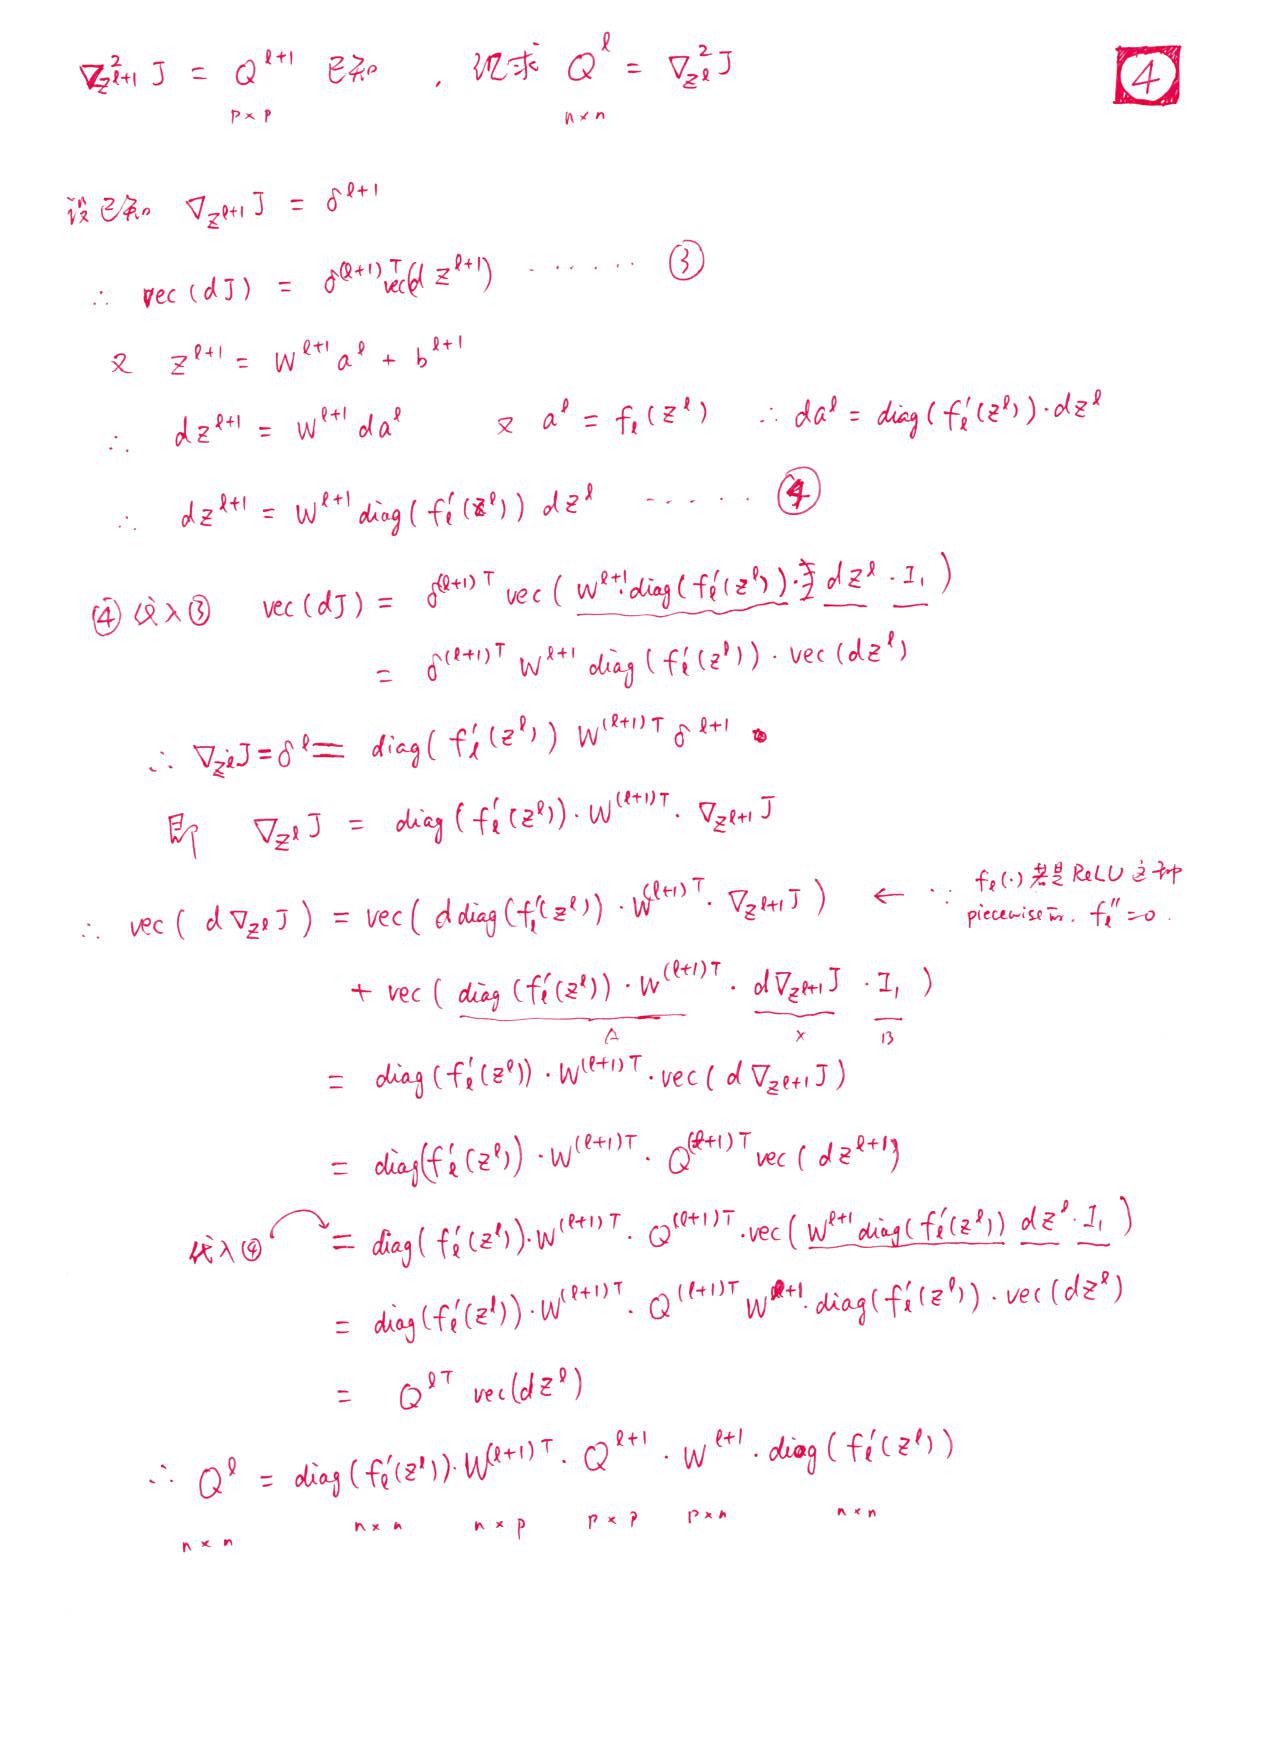 ∇²_{z^{ℓ+1}} J = Q^{ℓ+1} 已知 , 求 Q^ℓ = ∇²_{z^ℓ} J ④
p×p n×n
设已知 ∇_{z^{ℓ+1}} J = δ^{ℓ+1}
∴ vec(dJ) = δ^{(ℓ+1)T} vec(d z^{ℓ+1}) ...... ③
又 z^{ℓ+1} = W^{ℓ+1} a^ℓ + b^{ℓ+1}
∴ dz^{ℓ+1} = W^{ℓ+1} da^ℓ 又 a^ℓ = f_ℓ(z^ℓ) ∴ da^ℓ = diag(f'_ℓ(z^ℓ))·dz^ℓ
∴ dz^{ℓ+1} = W^{ℓ+1} diag(f'_ℓ(z^ℓ)) dz^ℓ ...... ④
④代入③ vec(dJ) = δ^{(ℓ+1)T} vec(W^{ℓ+1}·diag(f'_ℓ(z^ℓ))· dz^ℓ · I₁)
= δ^{(ℓ+1)T} W^{ℓ+1} diag(f'_ℓ(z^ℓ)) · vec(dz^ℓ)
∴ ∇_{z^ℓ} J = δ^ℓ = diag(f'_ℓ(z^ℓ)) W^{(ℓ+1)T} δ^{ℓ+1}
即 ∇_{z^ℓ} J = diag(f'_ℓ(z^ℓ))·W^{(ℓ+1)T}·∇_{z^{ℓ+1}} J
∴ vec(d∇_{z^ℓ} J) = vec(d diag(f'_ℓ(z^ℓ))·W^{(ℓ+1)T}·∇_{z^{ℓ+1}} J) ← ∵ f_ℓ(·)若是ReLU这种
piecewise的. f''_ℓ = 0.
+ vec(diag(f'_ℓ(z^ℓ))·W^{(ℓ+1)T}·d∇_{z^{ℓ+1}} J · I₁)
A X B
= diag(f'_ℓ(z^ℓ))·W^{(ℓ+1)T}·vec(d∇_{z^{ℓ+1}} J)
= diag(f'_ℓ(z^ℓ))·W^{(ℓ+1)T}·Q^{(ℓ+1)T} vec(dz^{ℓ+1})
代入④ = diag(f'_ℓ(z^ℓ))·W^{(ℓ+1)T}·Q^{(ℓ+1)T}·vec(W^{ℓ+1} diag(f'_ℓ(z^ℓ)) dz^ℓ·I₁)
= diag(f'_ℓ(z^ℓ))·W^{(ℓ+1)T}·Q^{(ℓ+1)T} W^{ℓ+1}·diag(f'_ℓ(z^ℓ))·vec(dz^ℓ)
= Q^{ℓT} vec(dz^ℓ)
∴ Q^ℓ = diag(f'_ℓ(z^ℓ))·W^{(ℓ+1)T}·Q^{ℓ+1}·W^{ℓ+1}·diag(f'_ℓ(z^ℓ))
n×n n×n n×p p×p p×n n×n